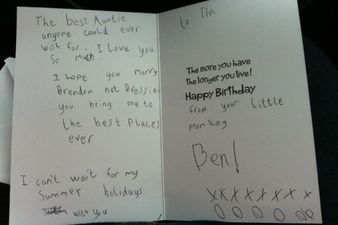 The best Auntie
anyone could ever
wish for. I love you
so much!
I hope you marry
Brendon not Bressie
you bring me to
the best places
ever
I can't wait for my
Summer holidays
with you
to Tia
The more you have
The longer you live!
Happy Birthday
from your little
monkey
Ben!
XXXXXXX
OOOOOO